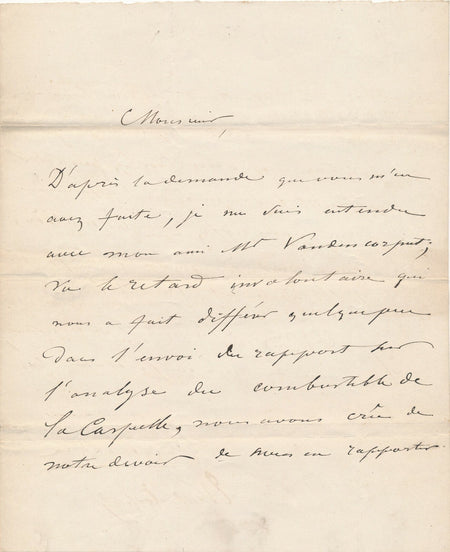 Monsieur,
D'après la demande que vous m'en
avez faite, je me suis entendu
avec mon ami Mr Vandencorput;
Vu le retard involontaire qui
nous a fait différer quelque peu
dans l'envoi du rapport sur
l'analyse du combustible de
la nous avons crû de
notre devoir de nous en rapporter